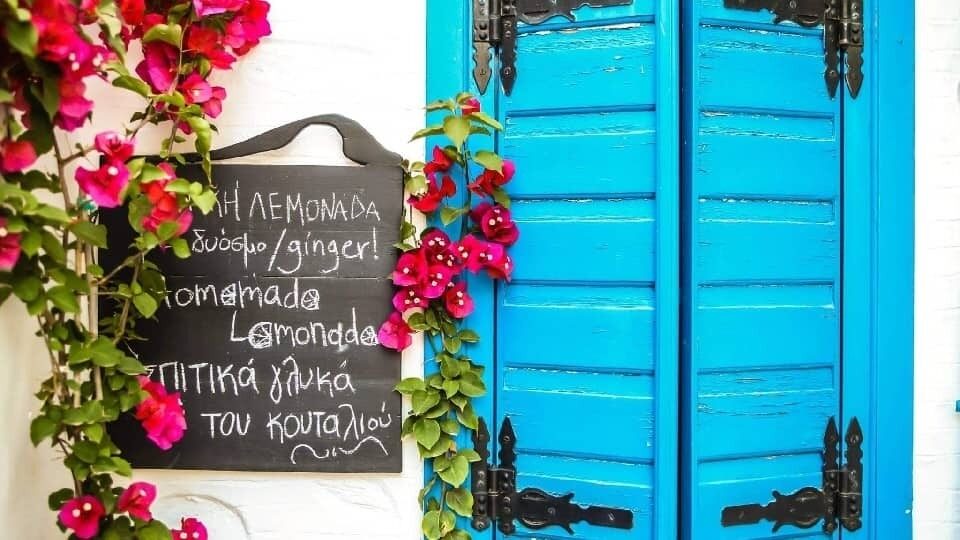 ΛΕΜΟΝΑΔΑ
δυόσμο/ginger!
Homemade
Lemonade
ΣΠΙΤΙΚά γλυκά
του κουταλιού